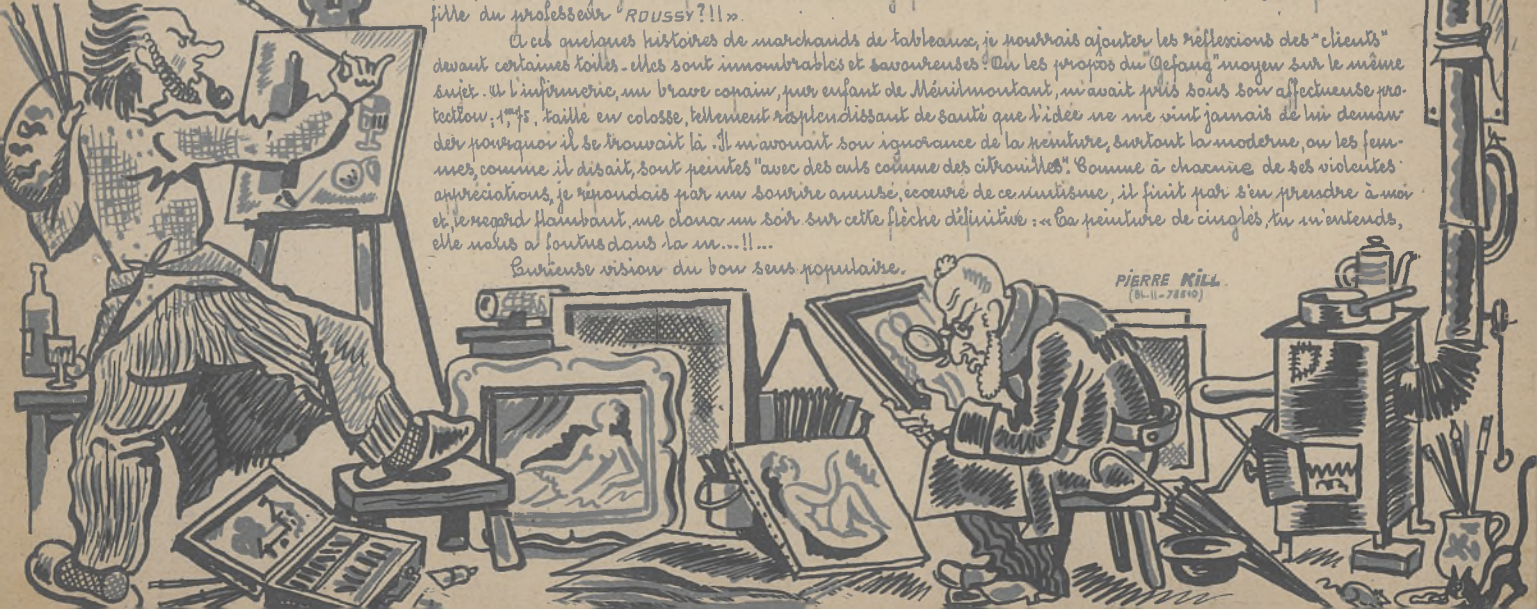 fille du professeur "ROUSSY?!!».
A ces quelques histoires de marchands de tableaux, je pourrais ajouter les réflexions des "clients"
devant certaines toiles - elles sont innombrables et savoureuses. Ou les propos du "Gefang" moyen sur le même
sujet. A l'infirmerie, un brave copain, pur enfant de Ménilmontant, m'avait pris sous son affectueuse pro-
tection; 1m75, taillé en colosse, tellement resplendissant de santé que l'idée ne me vint jamais de lui deman-
der pourquoi il se trouvait là. Il m'avouait son ignorance de la peinture, surtout la moderne, ou les fem-
mes, comme il disait, sont peintes "avec des culs comme des citrouilles". Comme à chacune de ses violentes
appréciations, je répondais par un sourire amusé, écœuré de ce mutisme, il finit par s'en prendre à moi
et, le regard flambant, me cloua un soir sur cette flèche définitive : « Ca peinture de cinglés, tu m'entends,
elle nous a foutus dans la m...!!...
Curieuse vision du bon sens populaire.
PIERRE KILL.